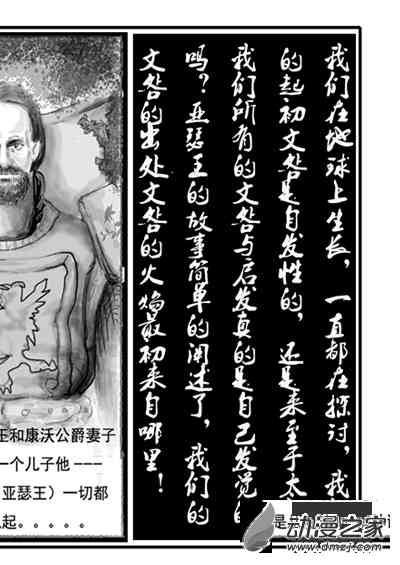 我们在地球上生长，一直都在探讨，我
的起初文咎是自发性的，还是来至于太
我们所有的文咎与启发真的是自己发觉
吗？亚瑟王的故事简单的阐述了，我们的
文咎的出处文咎的火焰最初来自哪里！
王和康沃公爵妻子
一个儿子他 ---
亚瑟王）一切都
起．．．．．
是
动漫之家
www.dmzj.com